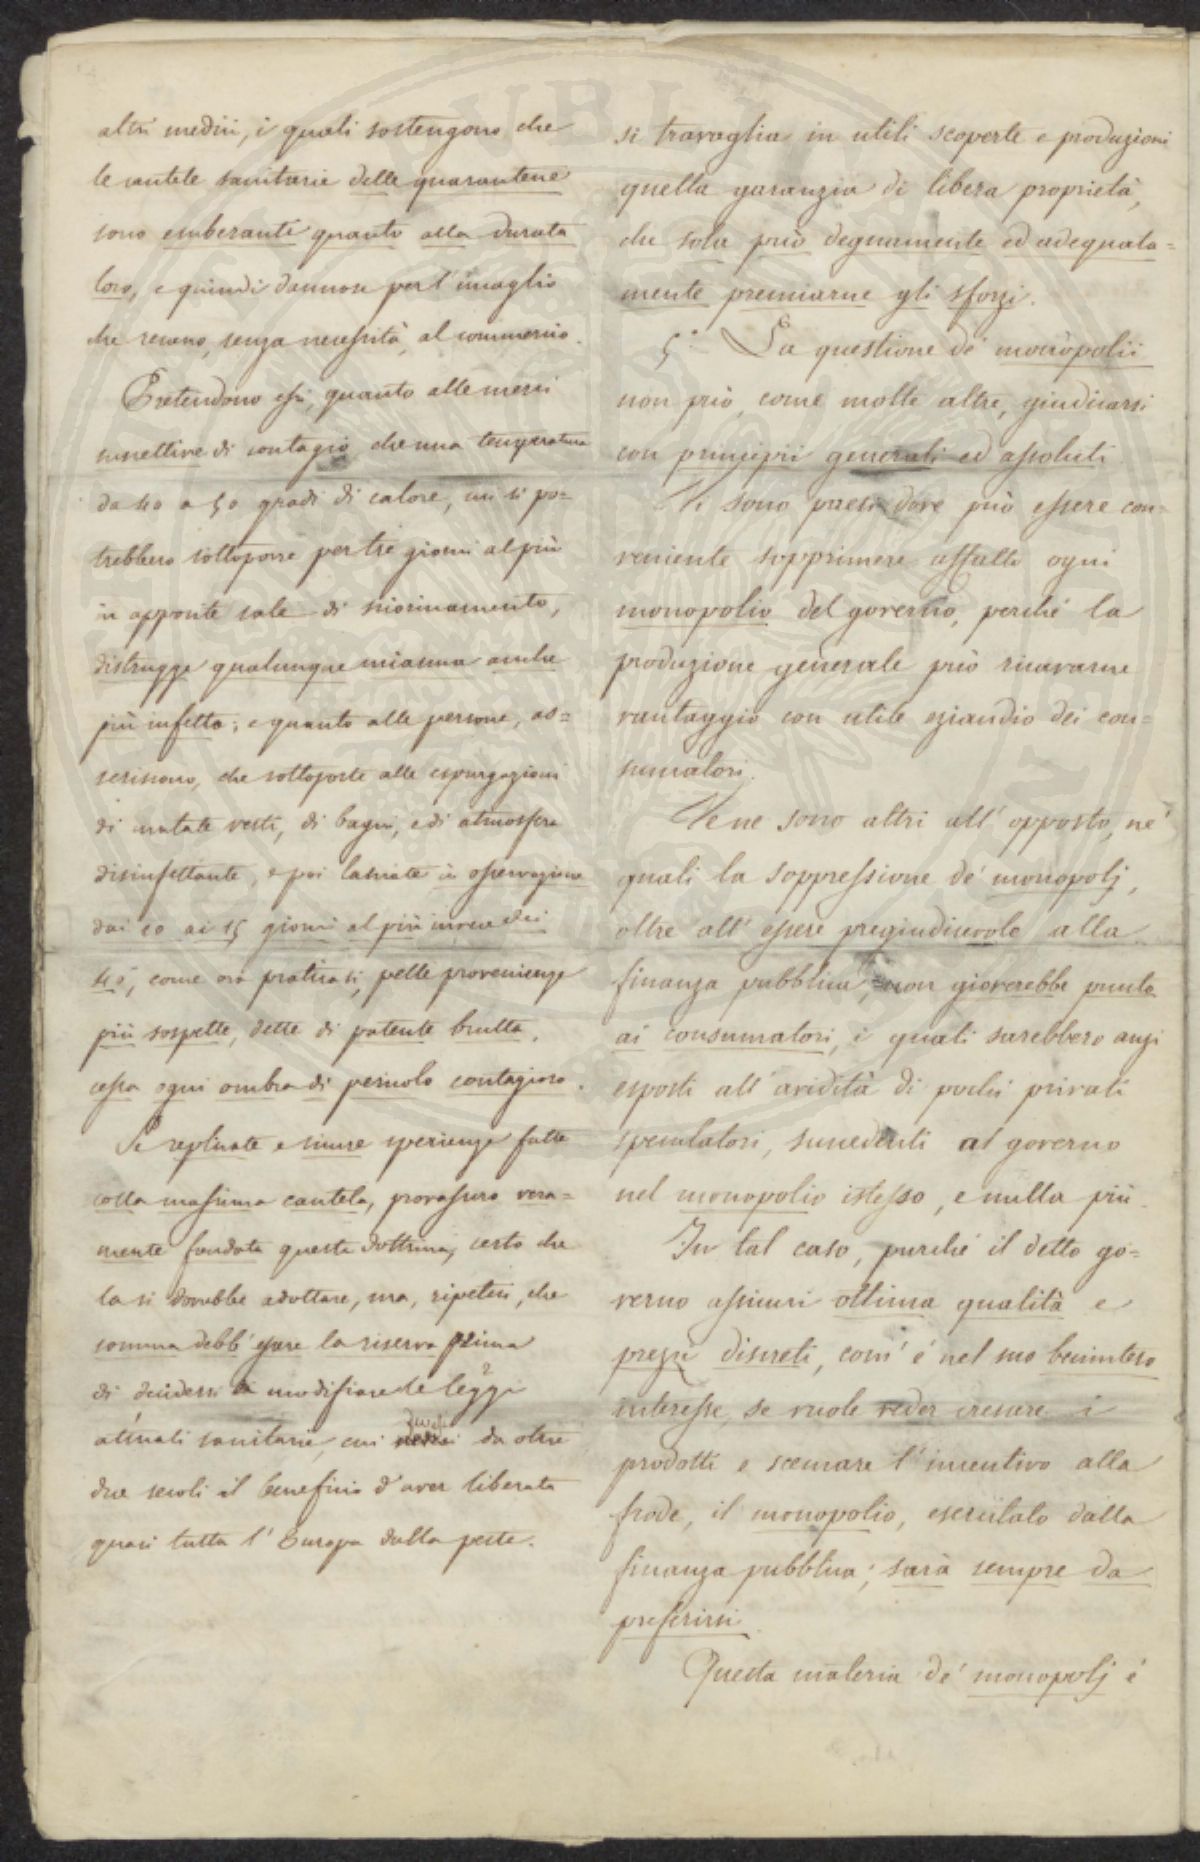 altri medici, i quali sostengono che
le cautele sanitarie delle quarantene
sono esuberanti quanto alla durata
loro, e quindi dannose per l'incaglio
che recano, senza necessità, al commercio.
Pretendono essi, quanto alle merci
suscettive di contagio che una temperatura
da 40 a 50 gradi di calore, cui si po=
trebbero sottoporre per tre giorni al più
in apposite sale di sciorinamento,
distrugge qualunque miasma anche
più infetto; e quanto alle persone, as=
seriscono, che sottoposte alle espurgazioni
di mutate vesti, di bagni, e di atmosfera
disinfettante, e poi lasciate in osservazione
dai 10 ai 15 giorni al più invece dei
40, come ora praticasi, pelle provenienze
più sospette, dette di patente brutta,
cessa ogni ombra di pericolo contagioso.
Se replicate e sicure sperienze fatte
colla massima cautela, provassero vera=
mente fondata questa dottrina, certo che
la si dovrebbe adottare, ma, ripetesi, che
somma debb'essere la riserva prima
di decidersi a modificare le leggi
attuali sanitarie, cui devesi da oltre
due secoli il beneficio d'aver liberata
quasi tutta l'Europa dalla peste.
si travaglia in utili scoperte e produzioni
quella garanzia di libera proprietà,
che sola può degnamente ed adequata=
mente premiarne gli sforzi.
5.° La questione de' monopolii
non può, come molte altre, giudicarsi
con principii generali ed assoluti.
Vi sono paesi dove può essere con=
veniente sopprimere affatto ogni
monopolio del governo, perché la
produzione generale può ricavarne
vantaggio con utile eziandio dei con=
sumatori.
Ve ne sono altri all'opposto, ne'
quali la soppressione de' monopolj,
oltre all'essere pregiudicevole alla
finanza pubblica, non gioverebbe punto
ai consumatori, i quali sarebbero anzi
esposti all'avidità di pochi privati
speculatori, succedenti al governo
nel monopolio istesso, e nulla più.
In tal caso, purché il detto go=
verno assicuri ottima qualità e
prezzi discreti, com'è nel suo beninteso
interesse, se vuole veder crescere i
prodotti e scemare l'incentivo alla
frode, il monopolio, esercitato dalla
finanza pubblica; sarà sempre da
preferirsi.
Questa materia de' monopolj è